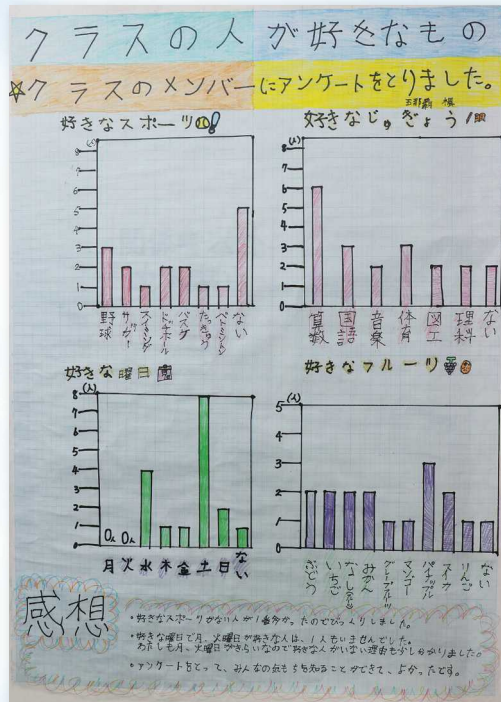 クラスの人が好きなもの
☆クラスのメンバーにアンケートをとりました。
好きなスポーツ
(人)
8
7
6
5
4
3
2
1
0
野球
サッカー
スイミング
ドッチボール
バスケ
たっきゅう
バドミントン
ない
好きなじゅぎょう
(人)
8
7
6
5
4
3
2
1
0
算数
国語
音楽
体育
図工
理科
ない
好きな曜日
(人)
8
7
6
5
4
3
2
1
0
0人 0人
月 火 水 木 金 土 日 ない
好きなフルーツ
(人)
5
4
3
2
1
0
ぶどう
いちご
なし
みかん
グレープフルーツ
マンゴー
パイナップル
スイカ
りんご
ない
感想
・好きなスポーツがない人が1番多かったのでびっくりしました。
・好きな曜日で月、火曜日が好きな人は、1人もいませんでした。
わたしも月、火曜日がきらいなので好きな人がいない理由も少し分かりました。
・アンケートをとって、みんなの気もちを知ることができて、よかったです。